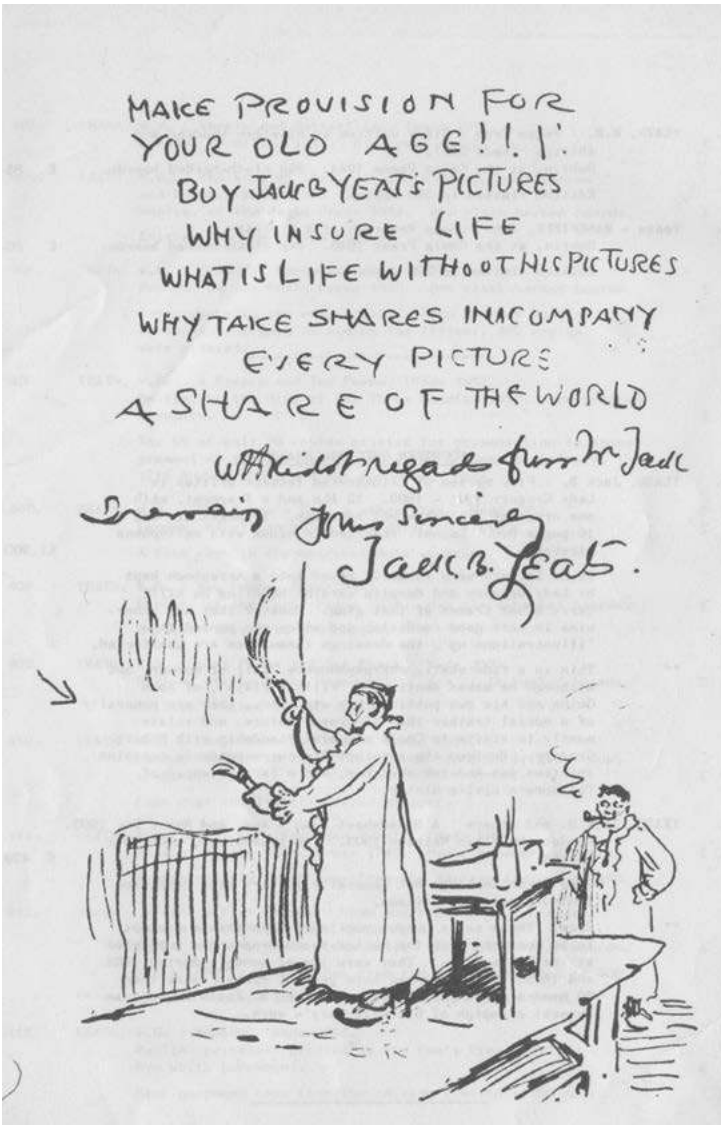 MAKE PROVISION FOR
YOUR OLD AGE!!!!
BUY JACK B YEATS PICTURES
WHY INSURE LIFE
WHAT IS LIFE WITHOUT HIS PICTURES
WHY TAKE SHARES IN A COMPANY
EVERY PICTURE
A SHARE OF THE WORLD
With kindest regards from Mr Jack
yours sincerely
Jack. B. Yeats.